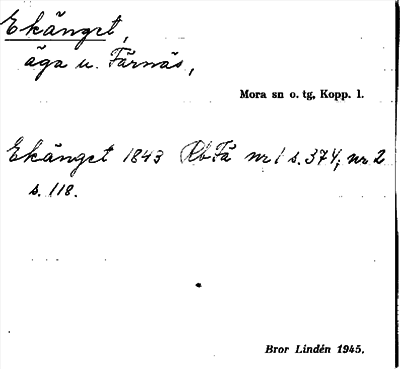 Ekänget,
äga u. Färnäs,
Mora sn o. tg, Kopp. l.
Ekänget 1843 Rb Fä nr 1 s. 374; nr 2
s. 118.
Bror Lindén 1945.